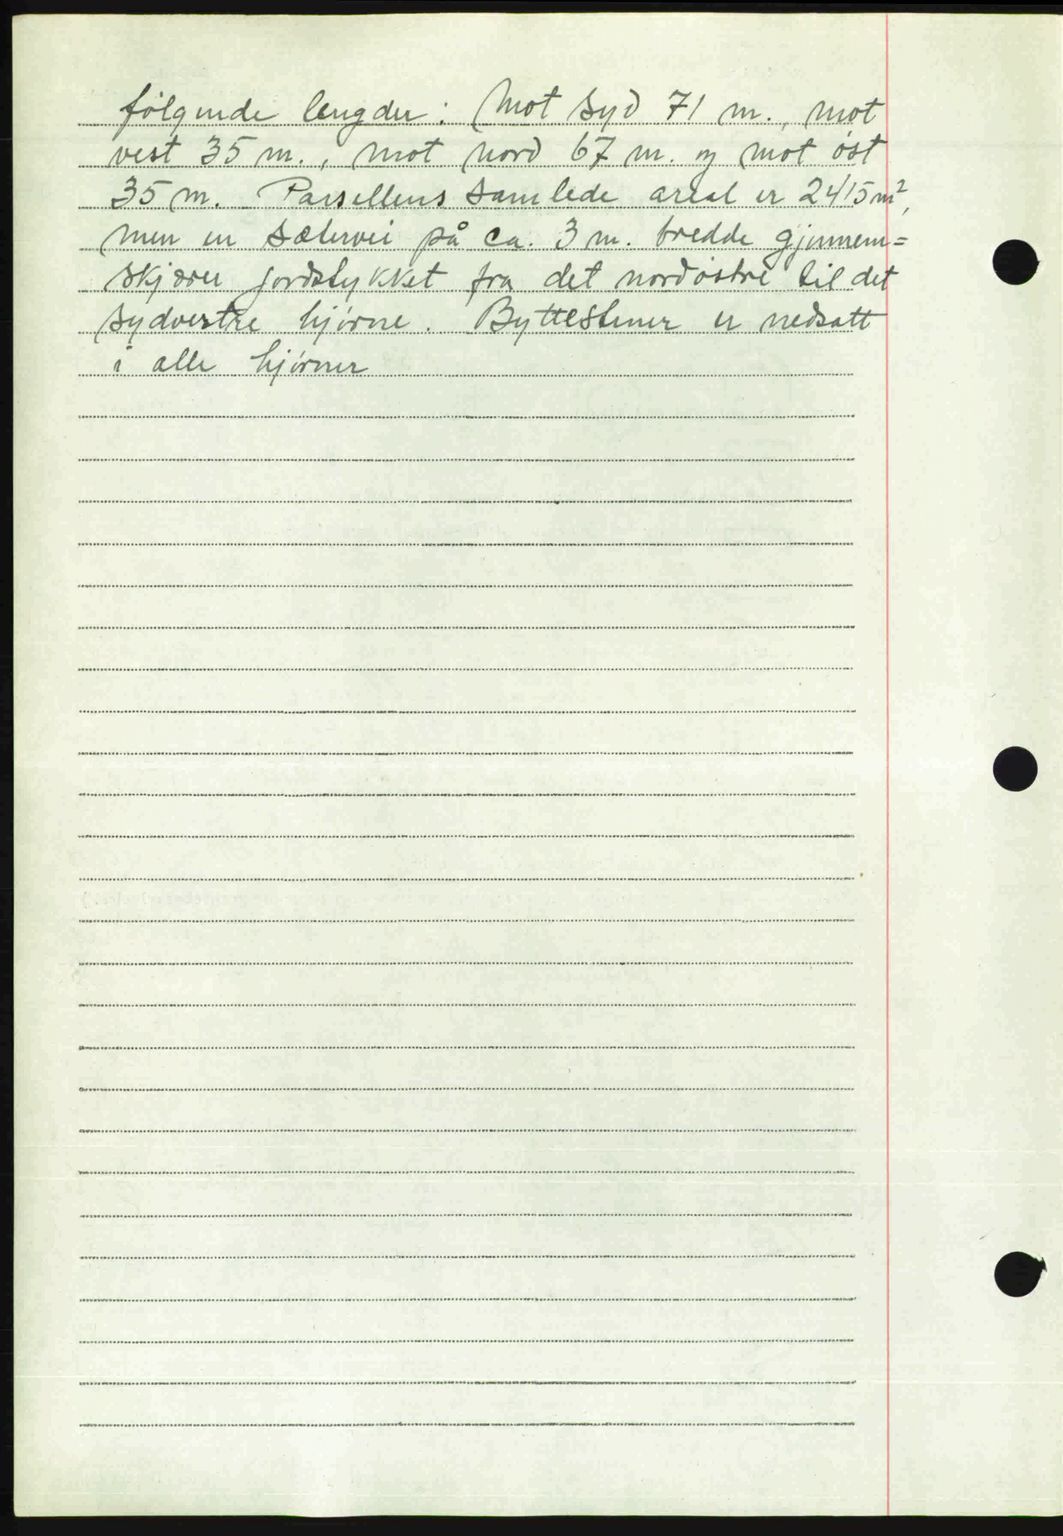 følgende lengder: Mot syd 71 m., mot
vest 35 m., mot nord 67 m. og mot øst
35 m. Parsellens samlede areal er 2415 m²,
men en sætervei på ca. 3 m. bredde gjennem=
skjærer jordstykket fra det nordøstre til det
sydvestre hjørne. Byttestener er nedsatt
i alle hjørner